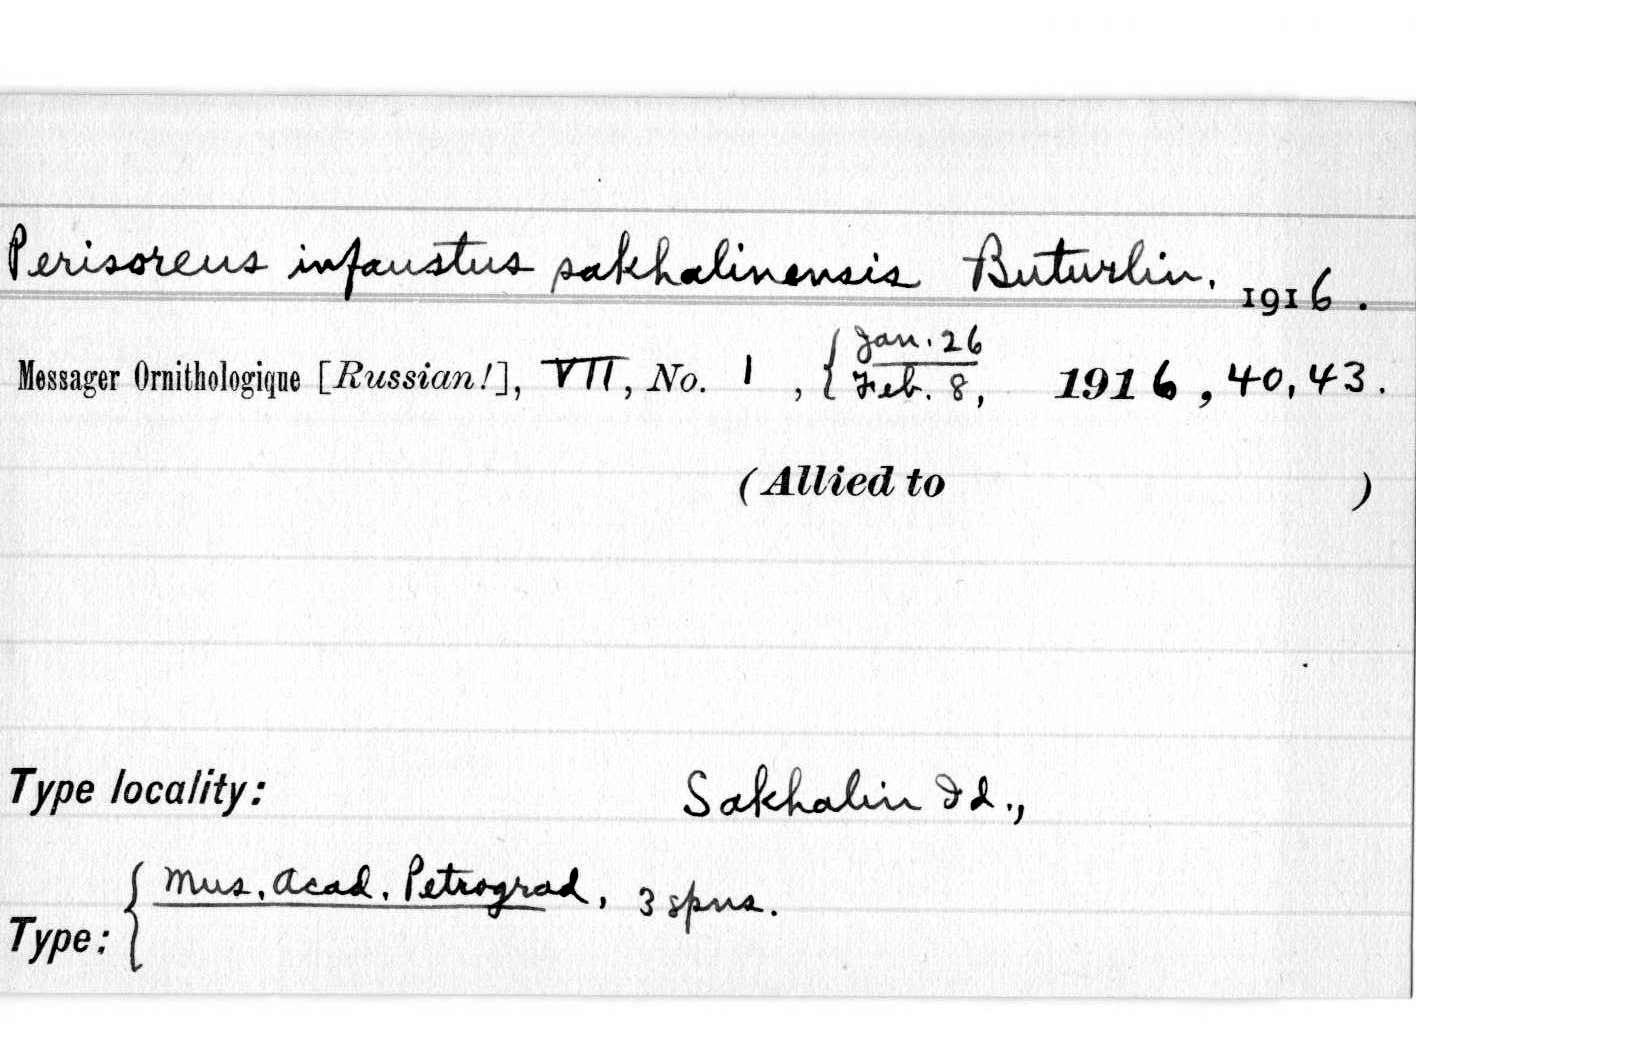 Perisoreus infaustus sakhalinensis Buturlin. 1916.
Messager Ornithologique [Russian!], VII, No. 1, { Jan. 26
Feb. 8, 1916, 40, 43.
(Allied to )
Type locality: Sakhalin Id.,
Type: { Mus. Acad. Petrograd, 3 spns.